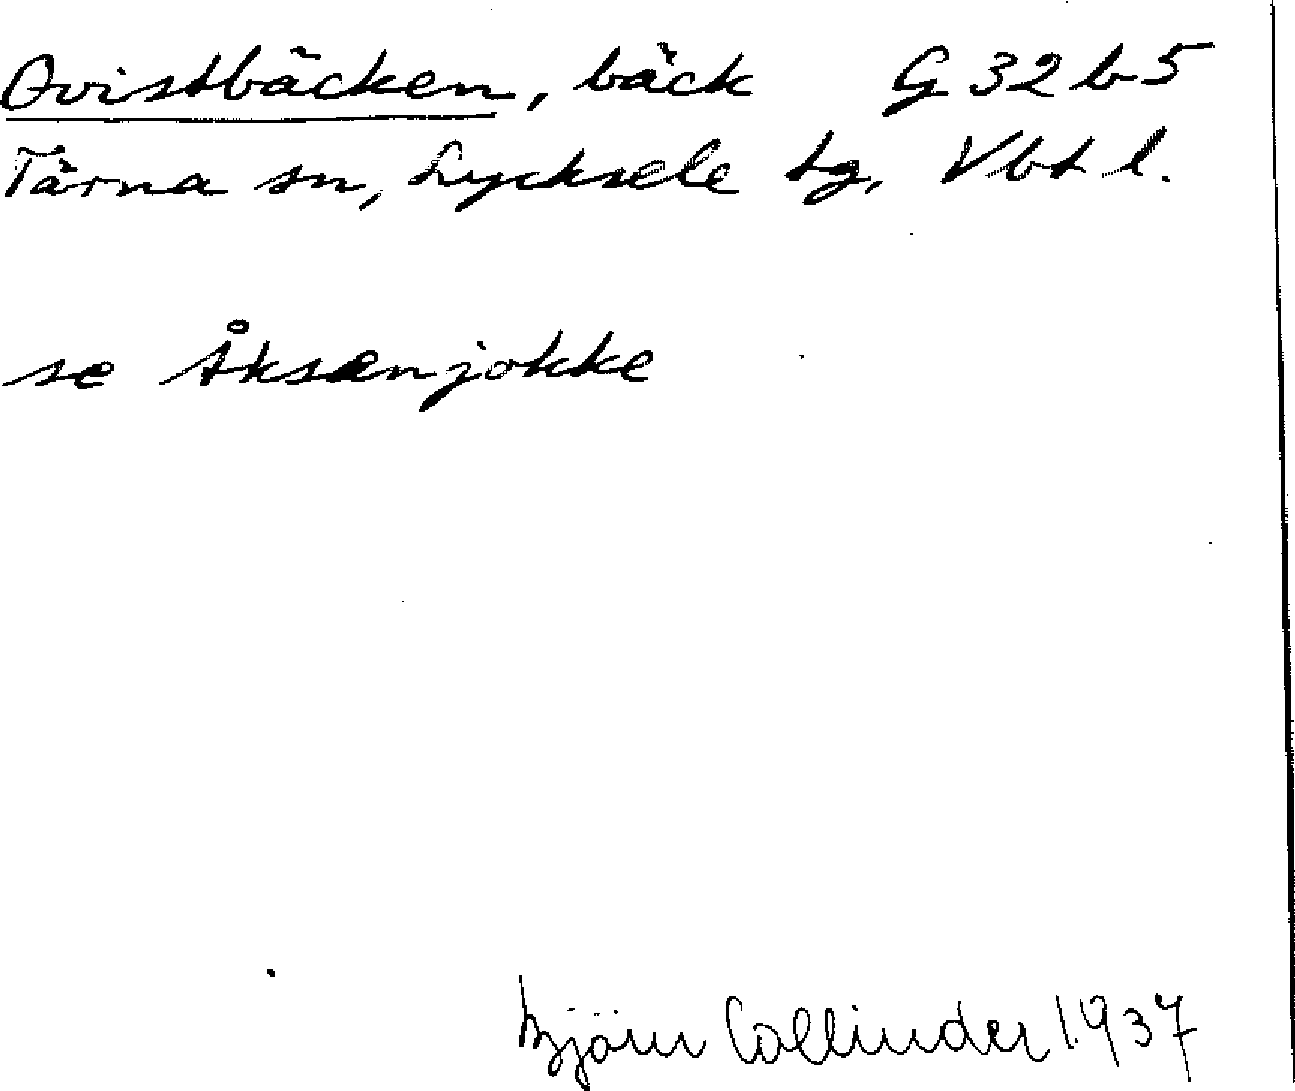 Qvistbäcken, bäck G 32 b 5
Tärna sn, Lycksele lg, Vbt l.
se Åksænjokke
Björn Collinder 1937